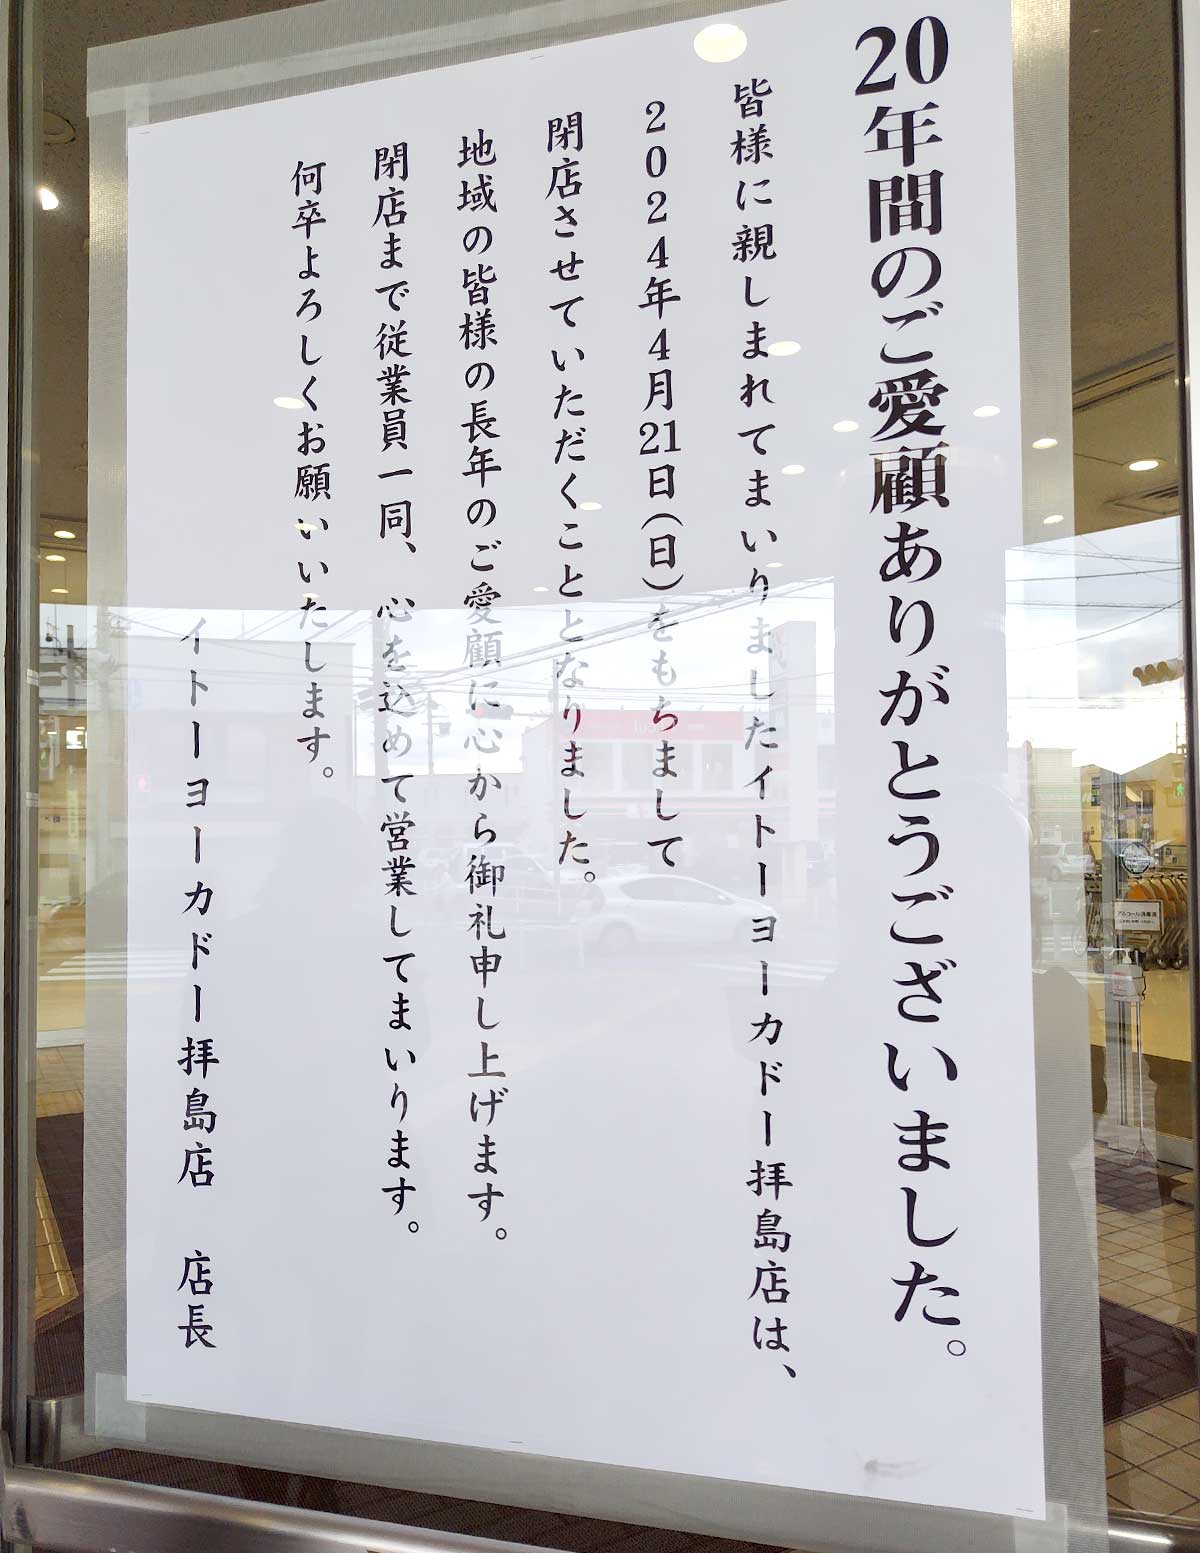 20年間のご愛顧ありがとうございました。
皆様に親しまれてまいりましたイトーヨーカドー拝島店は、
2024年4月21日(日)をもちまして
閉店させていただくこととなりました。
地域の皆様の長年のご愛顧に心から御礼申し上げます。
閉店まで従業員一同、心を込めて営業してまいります。
何卒よろしくお願いいたします。
イトーヨーカドー拝島店　店長
アルコール消毒液